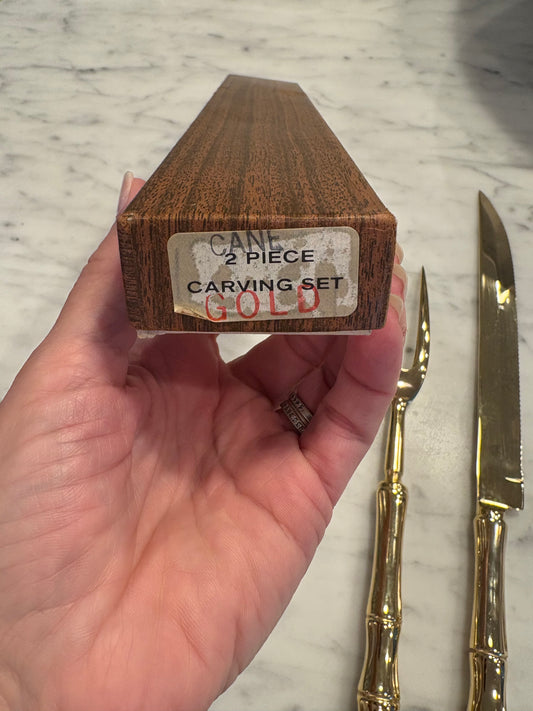 CANE
2 PIECE
CARVING SET
GOLD